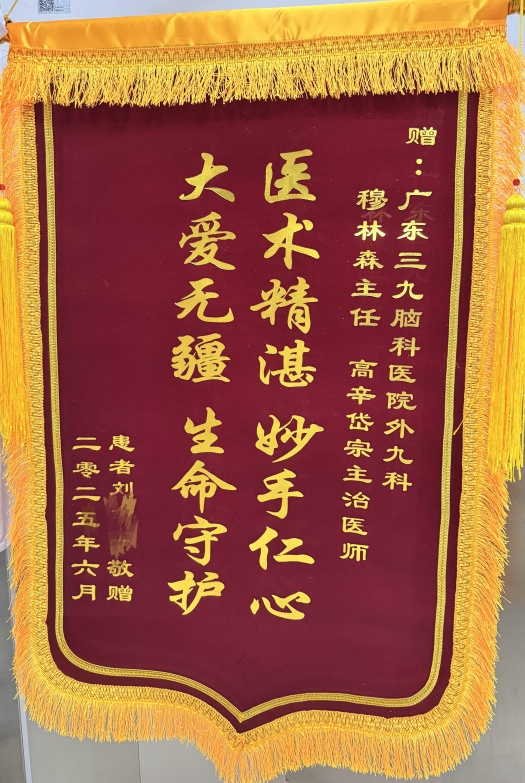 赠：广东三九脑科医院外九科
穆林森主任 高辛岱宗主治医师
医术精湛 妙手仁心
大爱无疆 生命守护
患者刘 敬赠
二零二五年六月